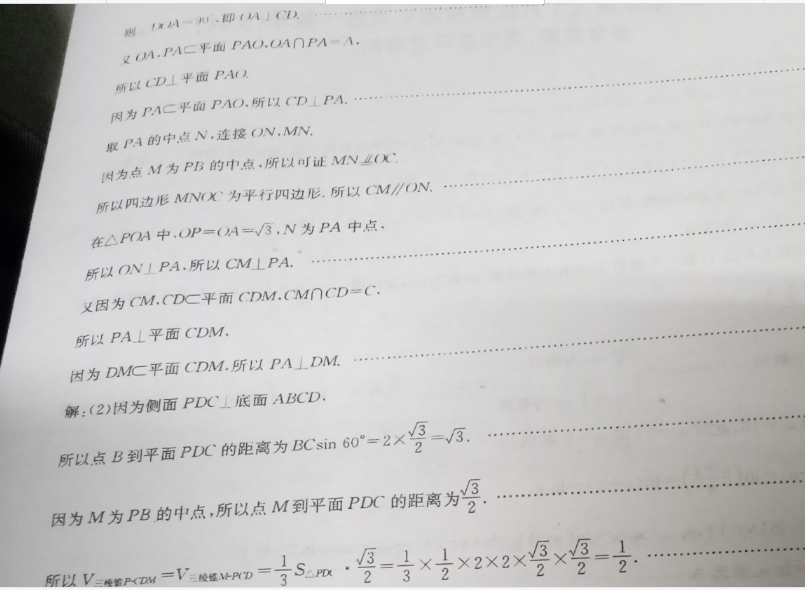 则∠DOA=90°,即OA⊥CD.
又OA,PA⊂平面PAO,OA∩PA=A,
所以CD⊥平面PAO.
因为PA⊂平面PAO,所以CD⊥PA.
取PA的中点N,连接ON,MN.
因为点M为PB的中点,所以可证MN⫽OC.
所以四边形MNOC为平行四边形.所以CM//ON.
在△POA中,OP=OA=√3,N为PA中点,
所以ON⊥PA,所以CM⊥PA.
又因为CM,CD⊂平面CDM,CM∩CD=C,
所以PA⊥平面CDM,
因为DM⊂平面CDM,所以PA⊥DM.
解:(2)因为侧面PDC⊥底面ABCD,
所以点B到平面PDC的距离为BCsin 60°=2×√3/2=√3.
因为M为PB的中点,所以点M到平面PDC的距离为√3/2.
所以V三棱锥P-CDM=V三棱锥M-PCD=1/3 S△PDC·√3/2=1/3×1/2×2×2×√3/2×√3/2=1/2.